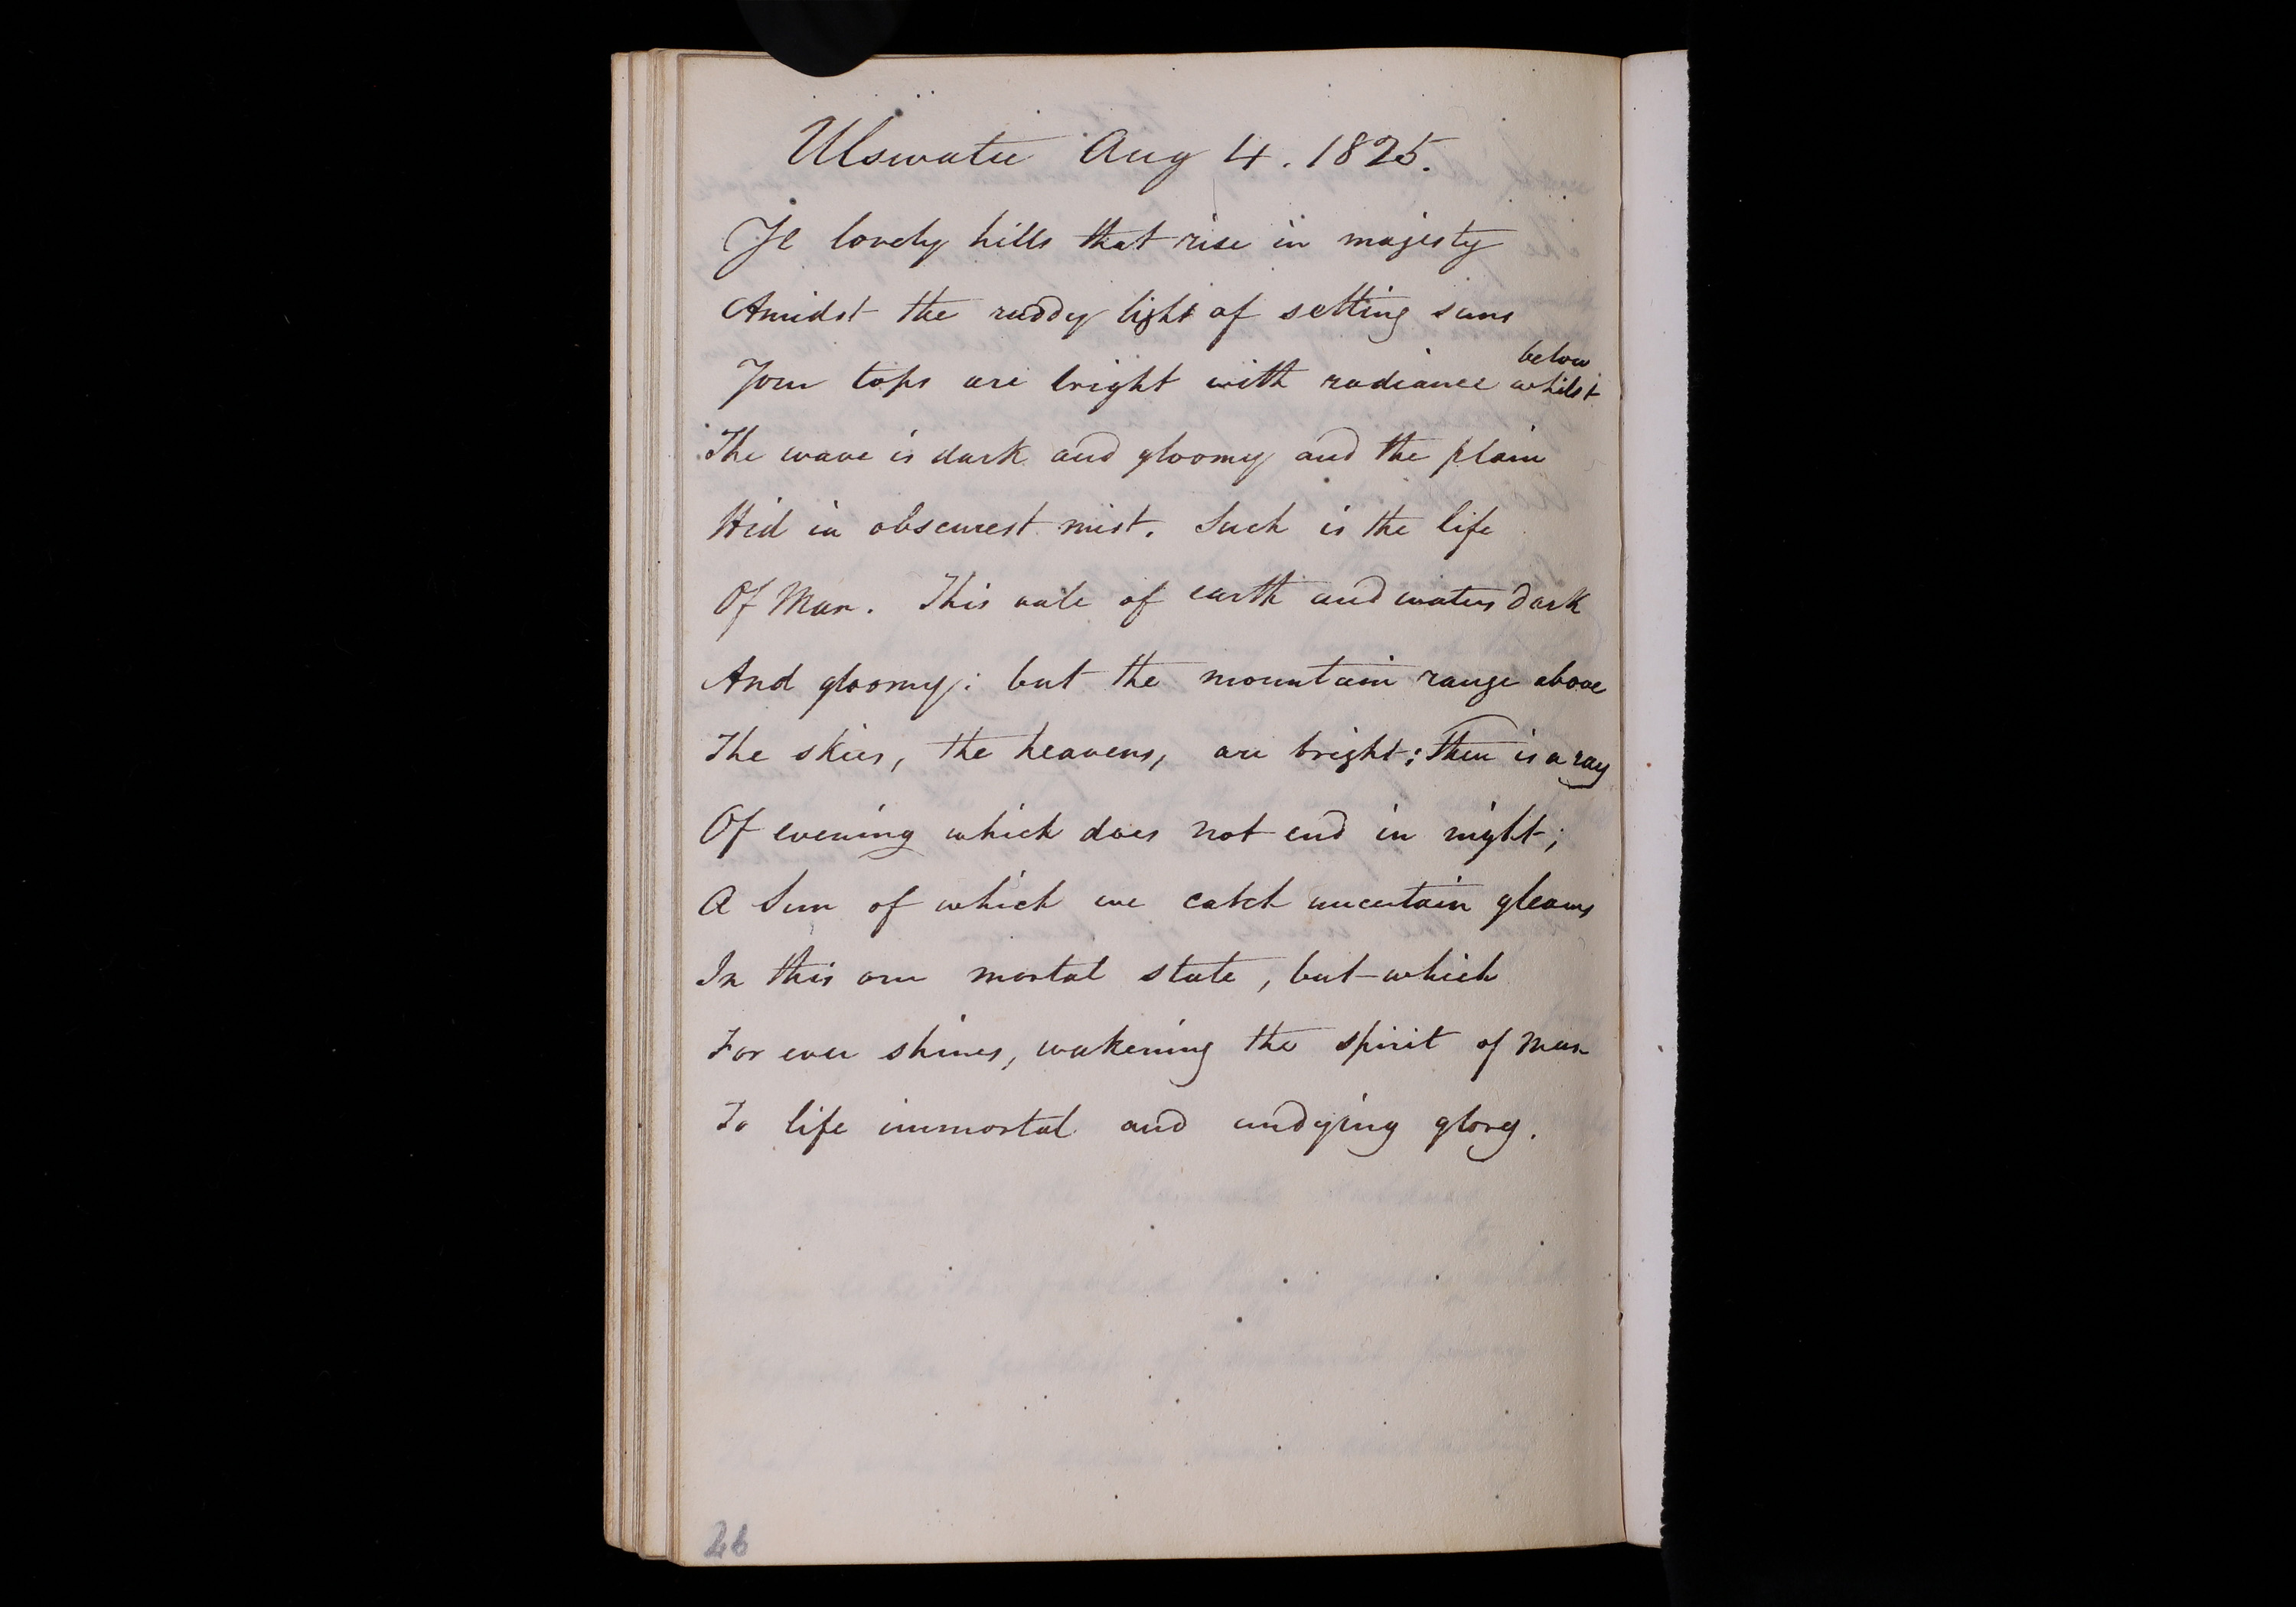 Ulswater Aug 4. 1825.
Ye lovely hills that rise in majesty
Amidst the ruddy light of setting suns
Your tops are bright with radiance whilst below
The wave is dark and gloomy and the plain
Hid in obscurest mist. Such is the life
Of Man. This vale of earth and waters dark
And gloomy: but the mountain range above
The skies, the heavens, are bright; There is a ray
Of evening which does not end in night;
A Sun of which we catch uncertain gleams
In this our mortal state, but which
For ever shines, wakening the spirit of Man
To life immortal and undying glory.
26